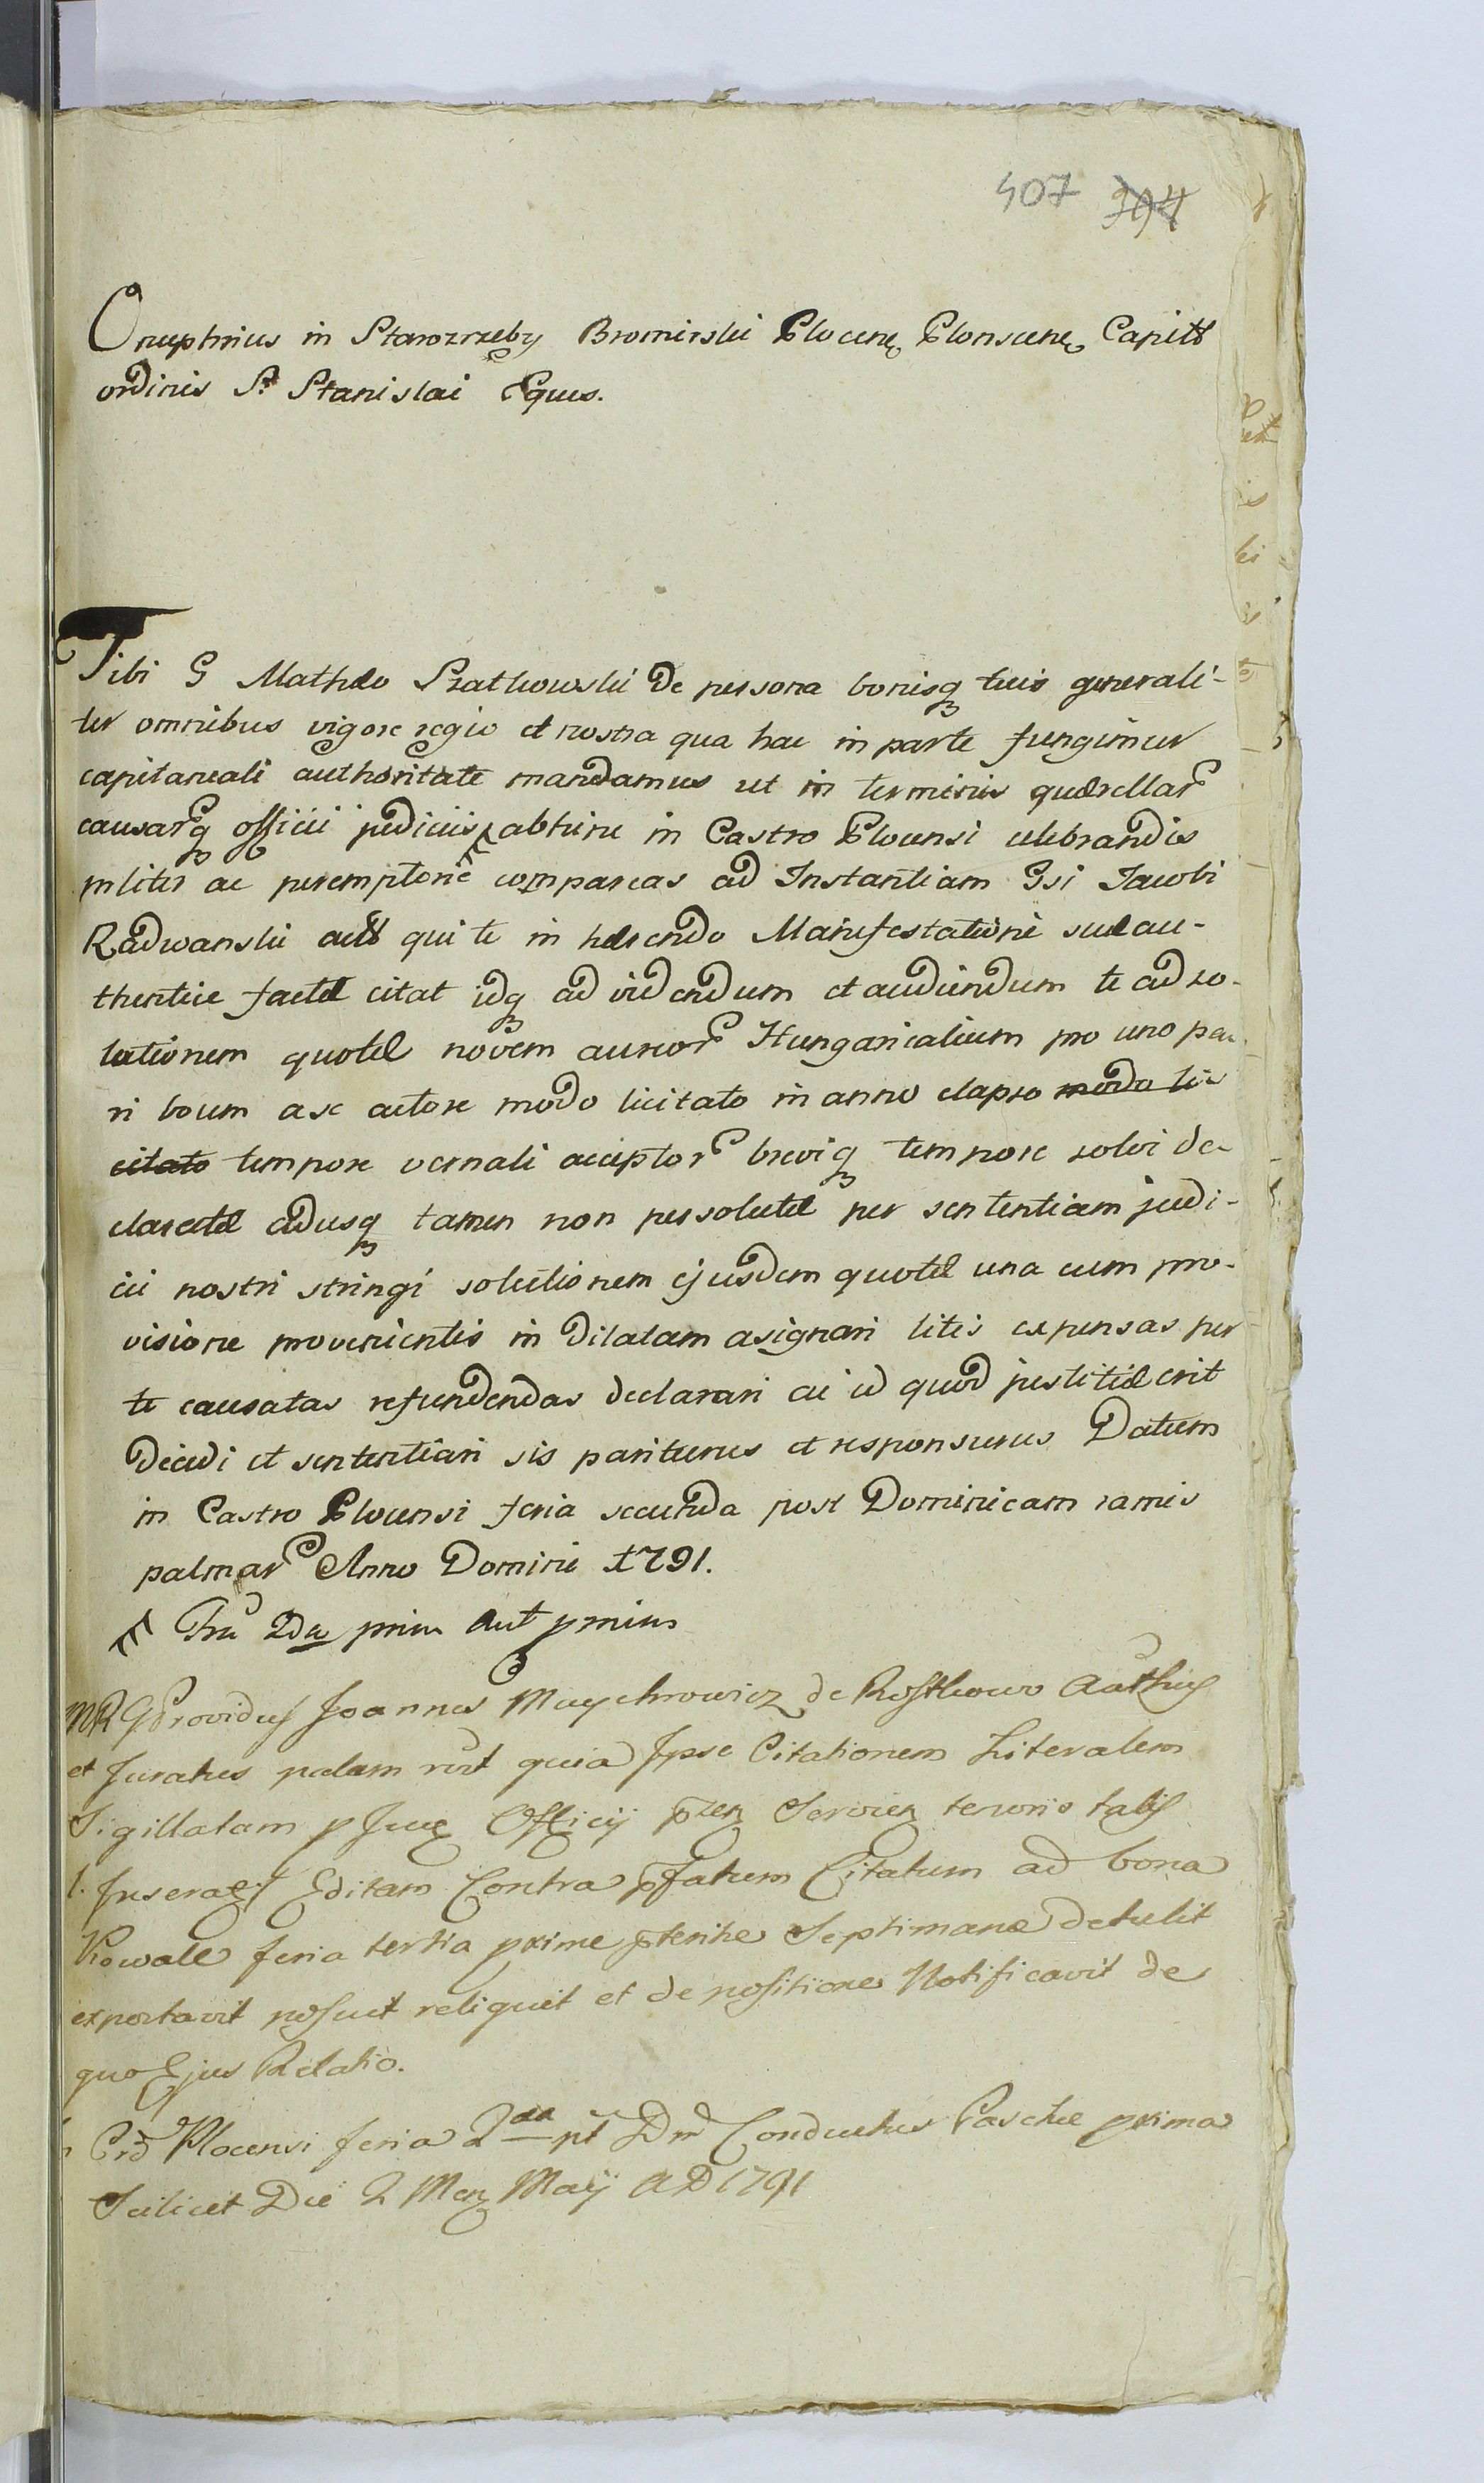 407 394
Onuphrius in Starozrzeby Bromirski Plocen Plonscen Capitt
ordinis S. Stanislai Eques.
Tibi G Mathæo Szatkowski de persona bonisq tuis generali-
ter omnibus vigore regio et nostra qua hac in parte fungimur
capitaneali authoritate mandamus ut in terminis quærellar
causarq officii judiciis abhinc in Castro Plocensi celebrandis
pnliter ac peremptorie compareas ad Instantiam Gsi Jacobi
Radwanski actt qui te in hærendo Manifestationi suæ au-
thentice factæ citat idq ad videndum et audiendum te ad so-
lutionem quotæ novem aureor Hungaricalium pro uno pa-
ri boum a se actore modo licitato in anno elapso modo li
citato tempore vernali acceptor breviq tempore solvi de-
claratæ adusq tamen non persolutæ per sententiam judi-
cii nostri stringi solutionem ejusdem quotæ una cum pro-
visione provenientis in dilatam asignari litis expensas per
te causatas refundendas declarari ac id quod justitiæ erit
decidi et sententiari sis pariturus et responsurus Datum
in Castro Plocensi feria secunda post Dominicam ramis
palmar Anno Domini 1791.
Fra 2da prim aut pmius
MR G Providus Joannes Maychrowicz de Rostkowo Authus
et Juratus palam rect quia Ipse Citationem Literalem
Sigillatam p Juxe Officij pzen Servien tenoris talis
Inseraes Editam Contra pfatum Citatum ad bona
Kowale feria tertia pxime pterite Septimanæ detulit
exportavit posuit reliquit et de positione Notificavit de
quo Ejus Relatio.
Crd Plocensi feria 2da pt Dm Conductus Paschæ pxima
Scilicet Die 2 Men Maij AD 1791